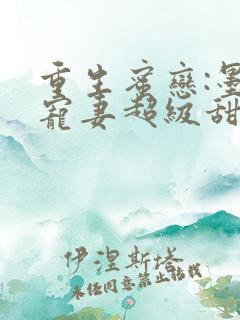 重生蜜戀:墨
寵妻超級甜
伊涅斯塔
未经同意禁止转载